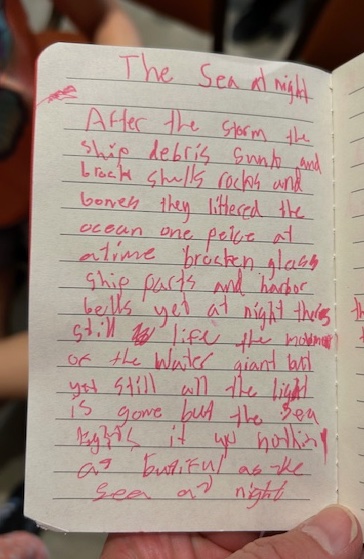 The Sea at night
After the storm the
ship debris sunk and
brock shells rocks and
bones they littered the
ocean one peice at
atime brocken glass
ship parts and harbor
bells yet at night theres
still life the
of the water giant but
yet still all the light
is gone but the Sea
lights it up nothing
as butiful as the
Sea at night